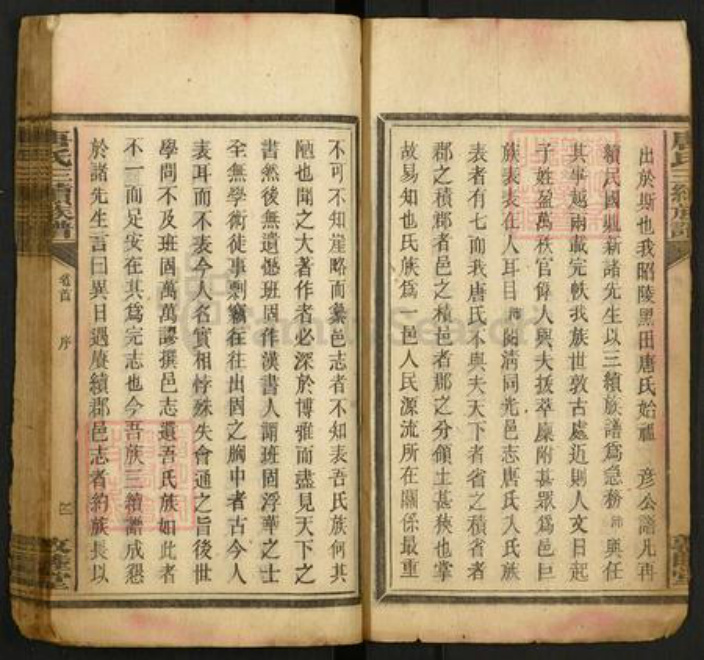 出於斯也我昭陵黑田唐氏始祖 彥公譜凡再
續民國剏新諸先生以三續族譜爲急務 與任
其事越兩載完帙我族世敦古處近則人文日起
子姓盈萬秩官偉人與夫拔萃廩附甚眾爲邑巨
族表表在人耳目 閱淸同光邑志唐氏入氏族
表者有七而我唐氏不與夫天下者省之積省者
郡之積郡者邑之積邑者郡之分領土甚狹也掌
故易知也氏族爲一邑人民源流所在關係最重
不可不知崖略而纂邑志者不知表吾氏族何其
陋也聞之大著作者必深於博雅而盡見天下之
書然後無遺憾班固作漢書人謂班固浮華之士
全無學術徒事剽竊往往出固之胸中者古今人
表耳而不表今人名實相悖殊失會通之旨後世
學問不及班固萬萬謬撰邑志遺吾氏族如此者
不一而足安在其爲完志也今吾族三續譜成懇
於諸先生言曰異日遇賡續郡邑志者約族長以
唐氏三續族譜 卷首 序 三 敦睦堂
唐氏三續族譜
FamilySearch